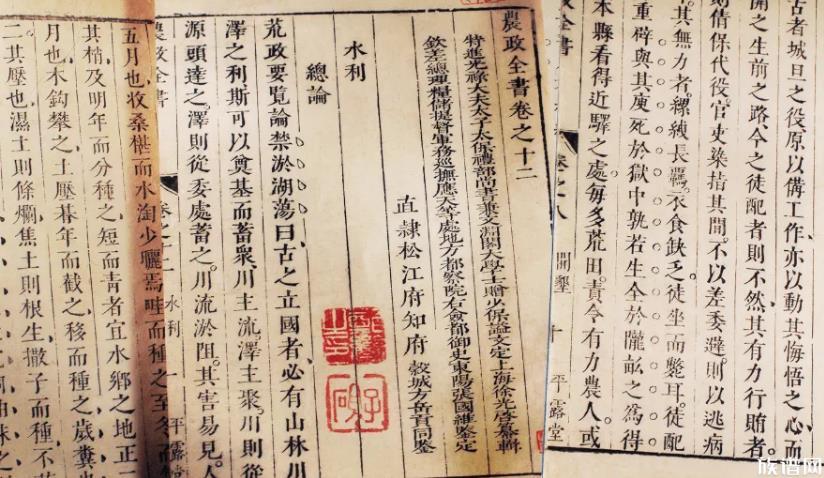 古者城旦之役。原以備工作。亦以動其悔悟之心而
開之生前之路。今之徒配者則不然。其有力行賄者
則倩保代役。官吏染指其間。不以差委避。則以逃病
其無力者。縲絏長羈。衣食缺乏。徒坐而斃耳。徒配
重辟與其庾死於獄中孰若生全於隴畝之為得
本縣看得近驛之處。每多荒田。責令有力農人。或
政全書 卷之八 開墾 十 平露堂
農政全書卷之十二
特進光祿大夫太子太保禮部尚書兼文淵閣大學士贈少保諡文定上海徐光啓纂輯
欽差總理糧儲提督軍務巡撫應天等處地方都察院右僉都御史東陽張國維鑒定
直隸松江府知府 穀城方岳貢同鑒
水利
總論
荒政要覽論禁淤湖蕩曰古之立國者必有山林川
澤之利斯可以奠基而蓄衆。川主流。澤主聚。川則從
源頭達之。澤則從委處蓄之。川流淤阻。其害易見。人
農政全書 卷之十二 水利 一 平露堂
五月也收桑椹而水淘少曬焉畦而種之至冬而
其梢及明年而分種之短而青者宜水鄉之地正二
月也木鈎攀之土壓朞年而截之移而種之歲糞
二其壓也濕土則條爛焦土則根生撒子而種不
族谱网